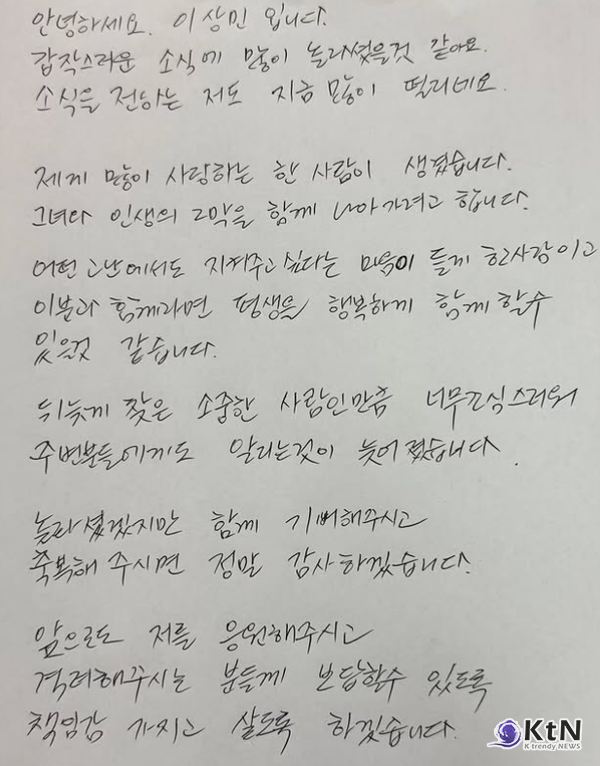 안녕하세요. 이상민 입니다.
갑작스러운 소식에 많이 놀라셨을것 같아요.
소식을 전하는 저도 지금 많이 떨리네요.
제게 많이 사랑하는 한 사람이 생겼습니다.
그녀와 인생의 2막을 함께 나아가려고 합니다.
어떤 고난에서도 지켜주고 싶다는 마음이 들게 한 사람이고
이분과 함께라면 평생을 행복하게 함께 할수
있을것 같습니다.
뒤늦게 찾은 소중한 사람인만큼 너무 조심스러워
주변분들에게도 알리는것이 늦어졌습니다.
놀라셨겠지만 함께 기뻐해주시고
축복해 주시면 정말 감사하겠습니다.
앞으로도 저를 응원해주시고
격려해주시는 분들께 보답할수 있도록
책임감 가지고 살도록 하겠습니다.
KtN
K trendy NEWS